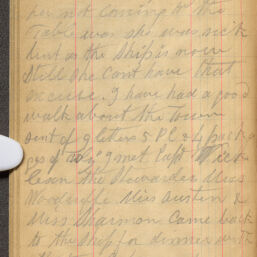 her not coming to the
Table was she was sick
but as the Ship is now
Still she Cant have that
excuse. I have had a good
walk about the Town
sent of 9 letters 5 P.C & 4 pack a
pes of I met Capt
the Stewarder Miss
Miss Austin &
Miss Sharmon Came back
to the Ship for dinner with